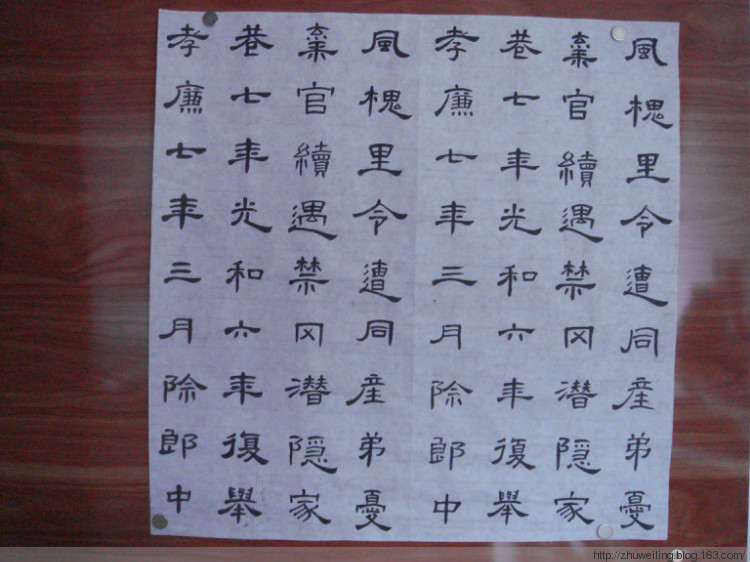 風槐里令遭同産弟憂
棄官續遇禁冈潛隱家
巷七年光和六年復舉
孝廉七年三月除郎中
風槐里令遭同産弟憂
棄官續遇禁冈潛隱家
巷七年光和六年復舉
孝廉七年三月除郎中
http://zhuweiling.blog.163.com/